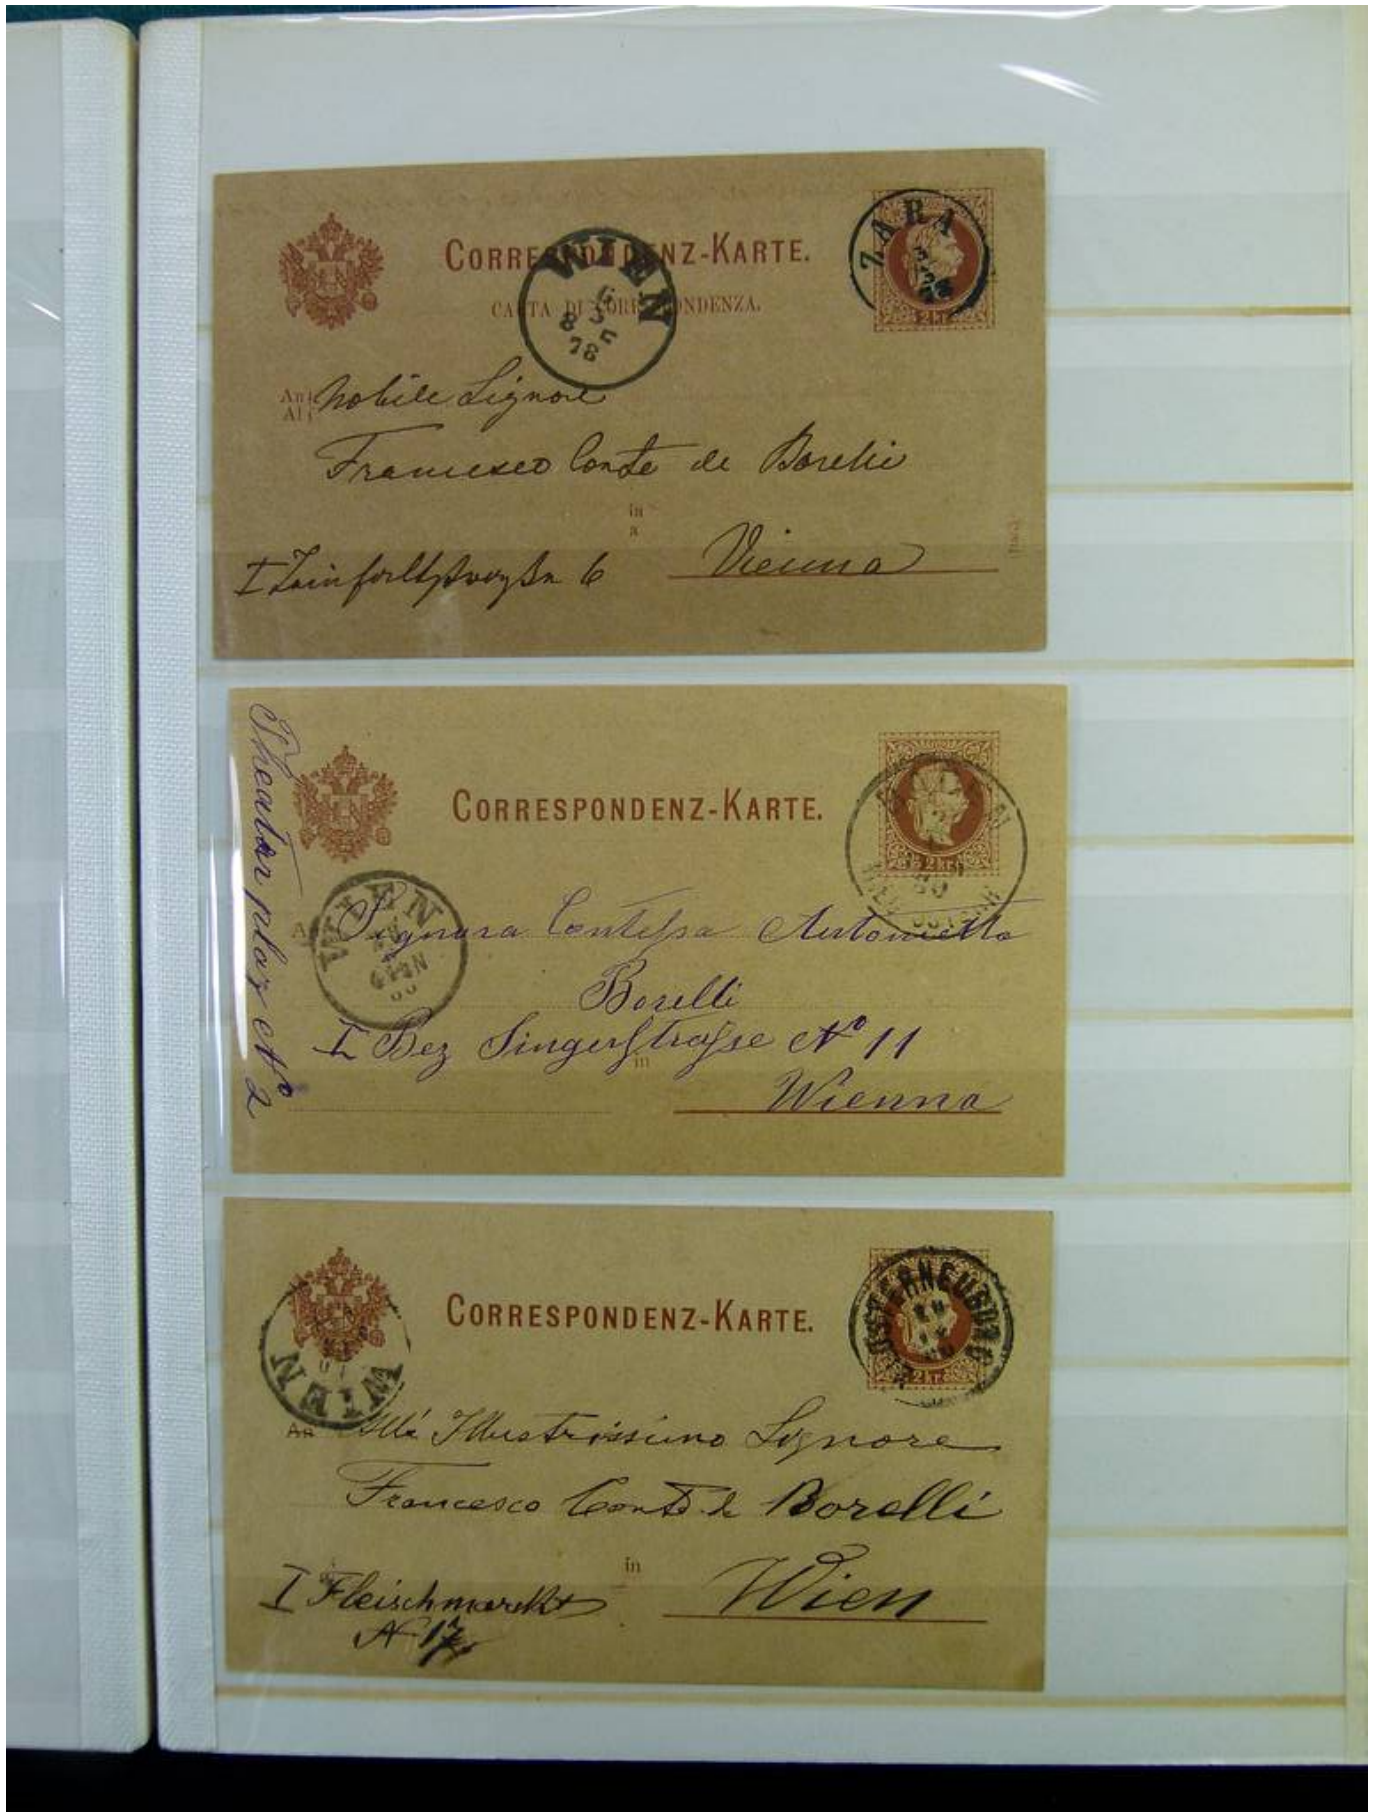 CORRESPONDENZ-KARTE.
CARTA DI CORRISPONDENZA.
WIEN
6
3
8
78
ZARA
2 kr
An
Al
Nobile Signore
Francesco Conte de Borelli
in
a
I 6
Vienna
CORRESPONDENZ-KARTE.
2 kr
WIEN
Signora Contessa Antonietta
Borelli
I Bez Singerstrasse No 11
in
Wienna
Theater plaz No 2
CORRESPONDENZ-KARTE.
WIEN
KLOSTERNEUBURG
2 kr
An
All' Illustrissimo Signore
Francesco Conte de Borelli
in
I Fleischmarckt
N 17
Wien